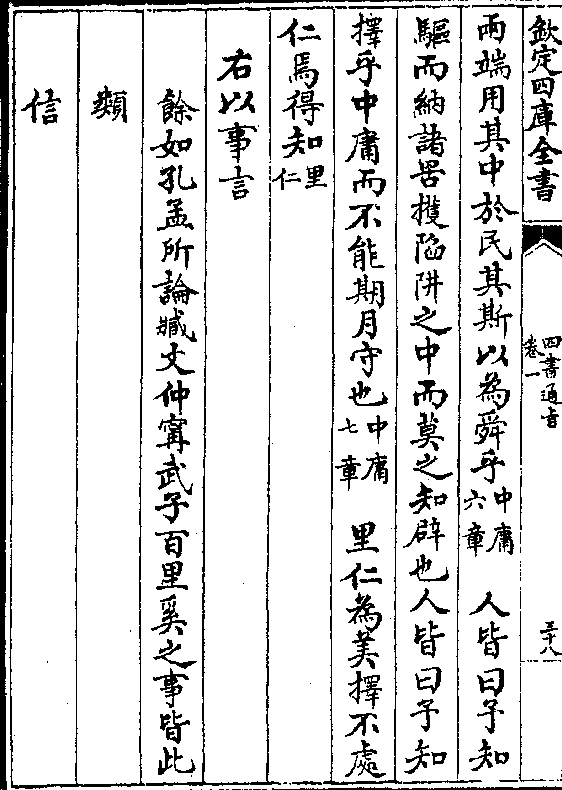 欽定四庫全書
四書通旨
卷一
三十八
兩端用其中於民其斯以為舜乎中庸六章 人皆曰予知
驅而納諸罟擭陷阱之中而莫之知辟也人皆曰予知
擇乎中庸而不能期月守也中庸七章 里仁為美擇不處
仁焉得知里仁
右以事言
餘如孔孟所論臧文仲甯武子百里奚之事皆此
類
信